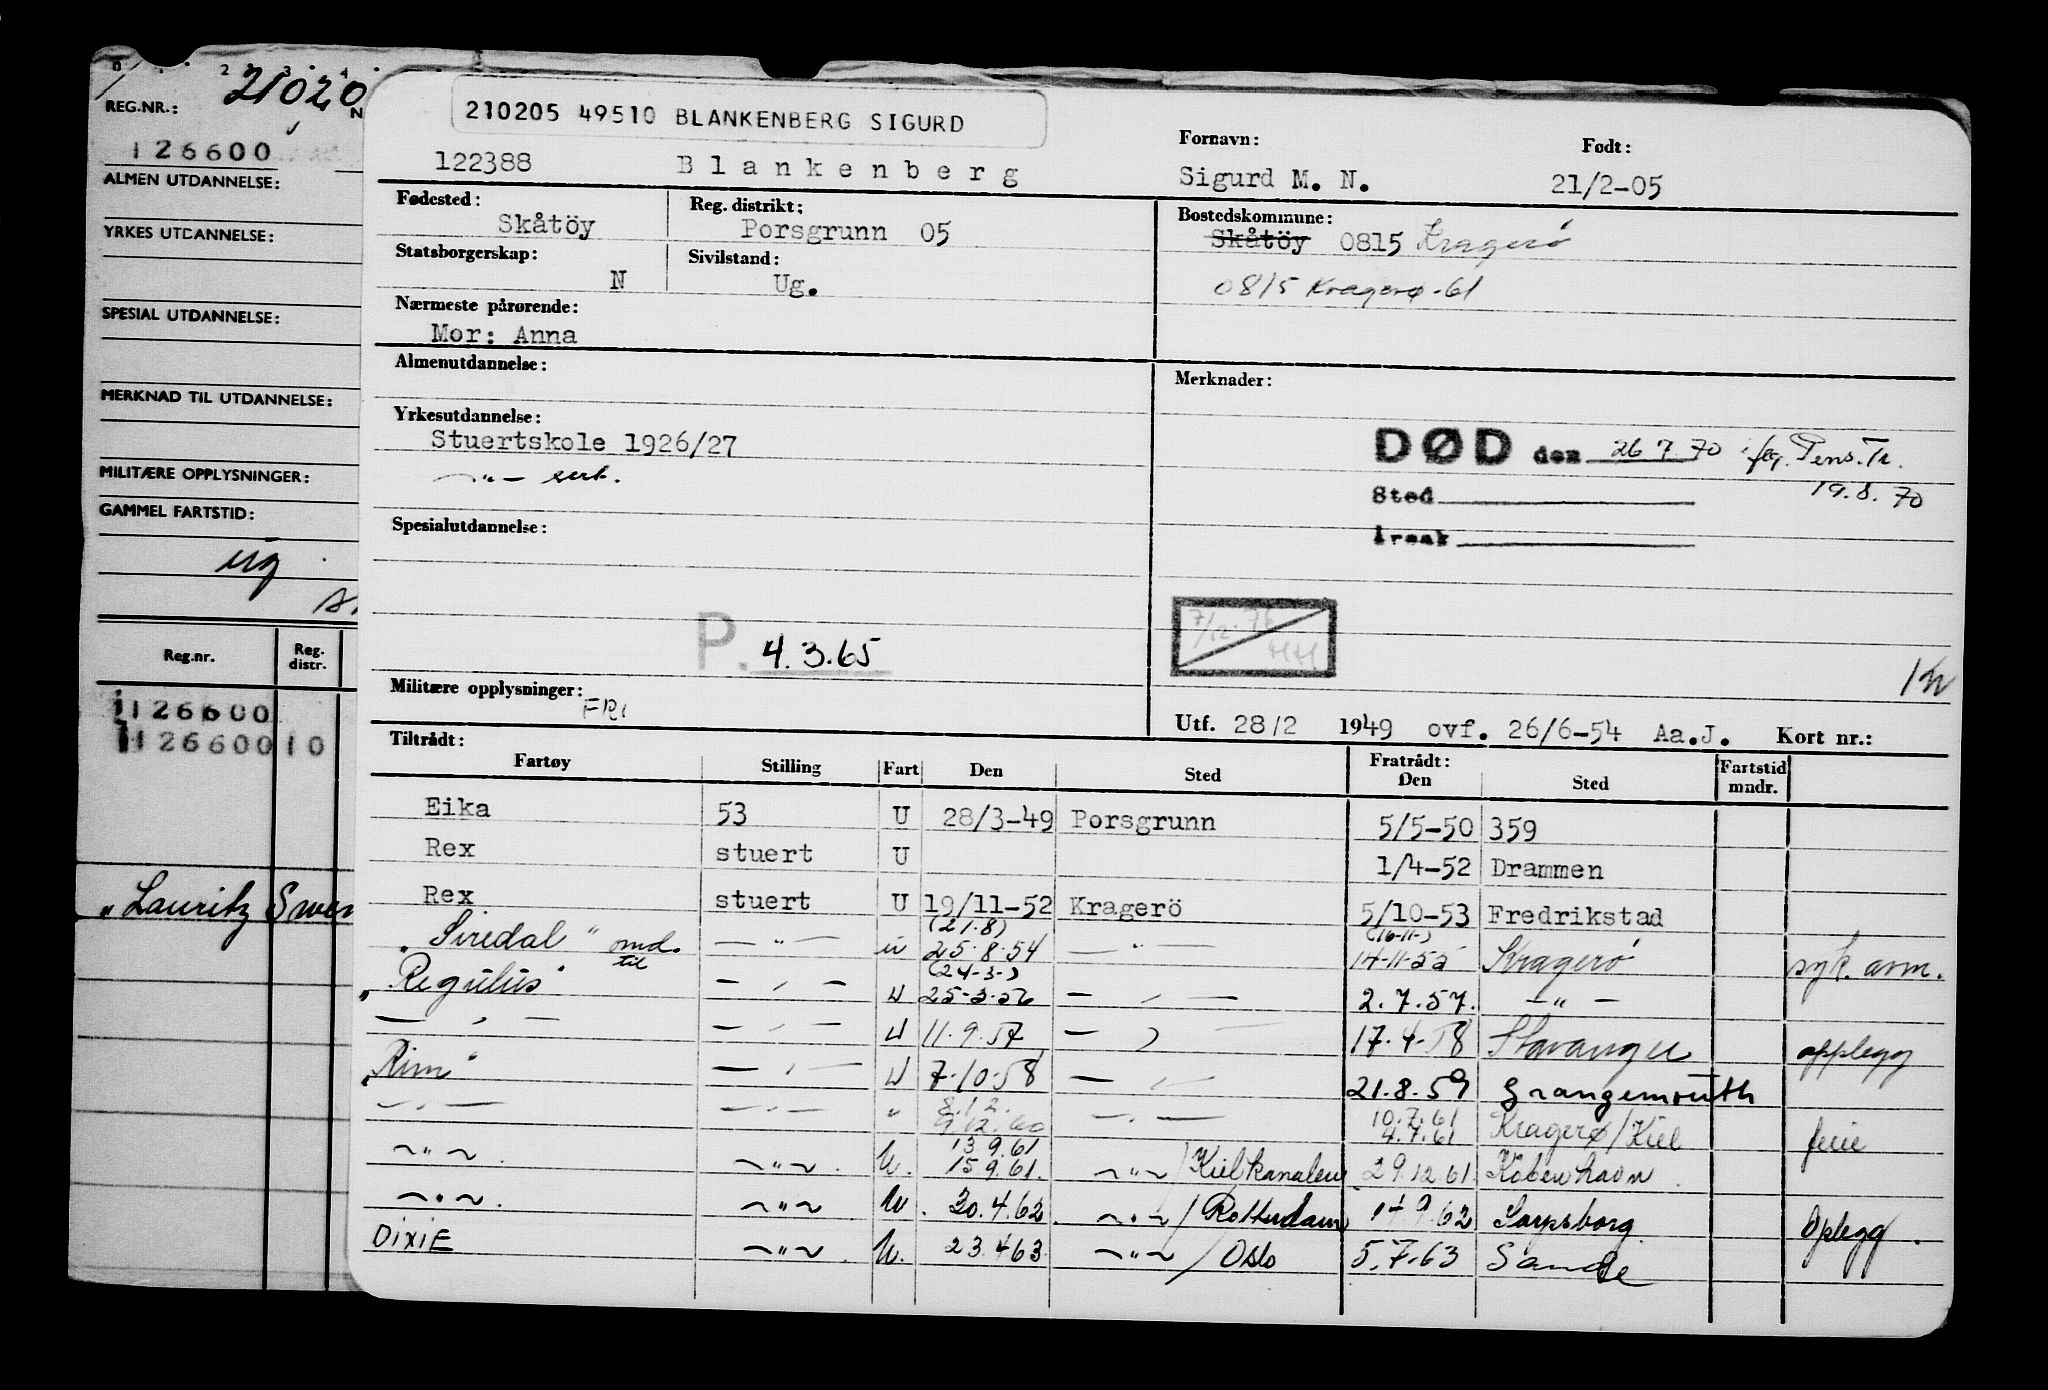 0 . 2 3 4
21020
REG.NR.:
N
126600
ALMEN UTDANNELSE:
YRKES UTDANNELSE:
SPESIAL UTDANNELSE:
MERKNAD TIL UTDANNELSE:
MILITÆRE OPPLYSNINGER:
GAMMEL FARTSTID:
ug
Reg.nr. Reg. distr.
126600
126600 10
"Lauritz Swen
210205 49510 BLANKENBERG SIGURD
122388 Blankenberg
Fornavn: Født:
Sigurd M. N. 21/2-05
Fødested: Reg. distrikt: Bostedskommune:
Skåtöy Porsgrunn 05 Skåtöy 0815 Kragerö
Statsborgerskap: Sivilstand:
N Ug. 0815 Kragerø-61
Nærmeste pårørende:
Mor: Anna
Almenutdannelse: Merknader:
Yrkesutdannelse:
Stuertskole 1926/27
—"— sert.
DØD den 26 7 70 ifg. Pens.Tr.
19.8.70
Sted
Årsak
Spesialutdannelse:
7/12-76
HH
P. 4.3.65
Militære opplysninger: FRI
Utf. 28/2 1949 ovf. 26/6-54 Aa.J. Kort nr.:
Tiltrådt: Fratrådt:
Fartøy Stilling Fart Den Sted Den Sted Fartstid mndr.
Eika 53 U 28/3-49 Porsgrunn 5/5-50 359
Rex stuert U 1/4-52 Drammen
Rex stuert U 19/11-52 Kragerö 5/10-53 Fredrikstad
(21.8) (16-11-)
"Siredal" omd. til —"— u 25.8.54 —"— 14-11-55 Kragerö syk. avm.
(24-3-)
"Regulus" —"— U 25-3-56 —"— 2.7.57. —"—
—"— —"— U 11.9.57 —"— 17.4.58 Stavanger opplegg
"Rim" —"— U 7.10.58 —"— 21.8.59 Grangemouth
8.12. 10.7.61
—"— —"— " 9.12.60 —"— 4.7.61 Kragerø/Kiel ferie
13.9.61
~"~. ~"~. U. 15.9.61. ~"~/Kielkanalen 29.12.61. København
~"~. ~"~ U. 30.4.62 ~"~/Rotterdam 14.9.62 Sarpsborg. Oplegg.
DIXIE ~"~. U. 23.4.63. ~"~/Oslo 5.7.63 Sande